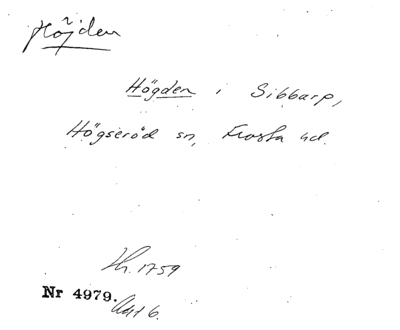 Höjden
Högden i Sibbarp,
Högseröd sn, Frosta hd.
Lh. 1759
Nr 4979.
Akt 6.